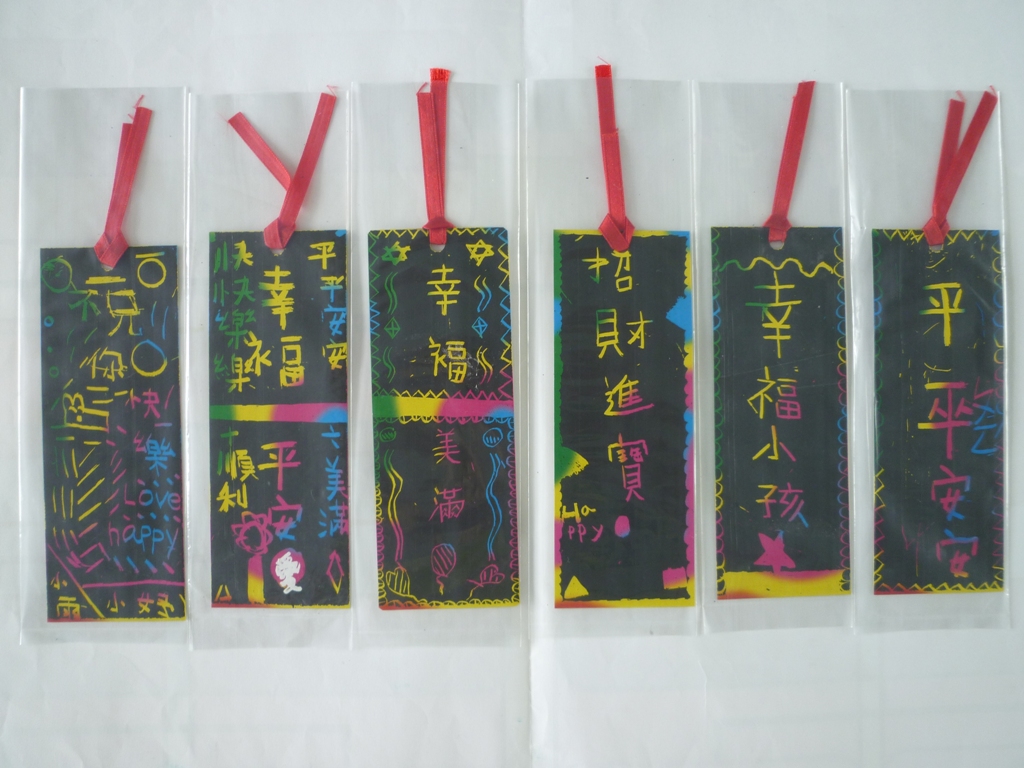 祝
你
快樂
Love
happy
小雨
小婷
快快樂樂
幸福
永
平平安安
順利
平安
美滿
愛
幸福
美滿
招財進寶
Ha
ppy
幸福小孩
平平安安